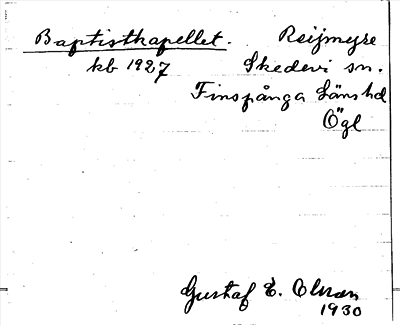 Baptistkapellet. Reijmyre
kb 1927 Skedevi sn.
Finspånga Länshd
Ögl
Gustaf E. Olsson
1930